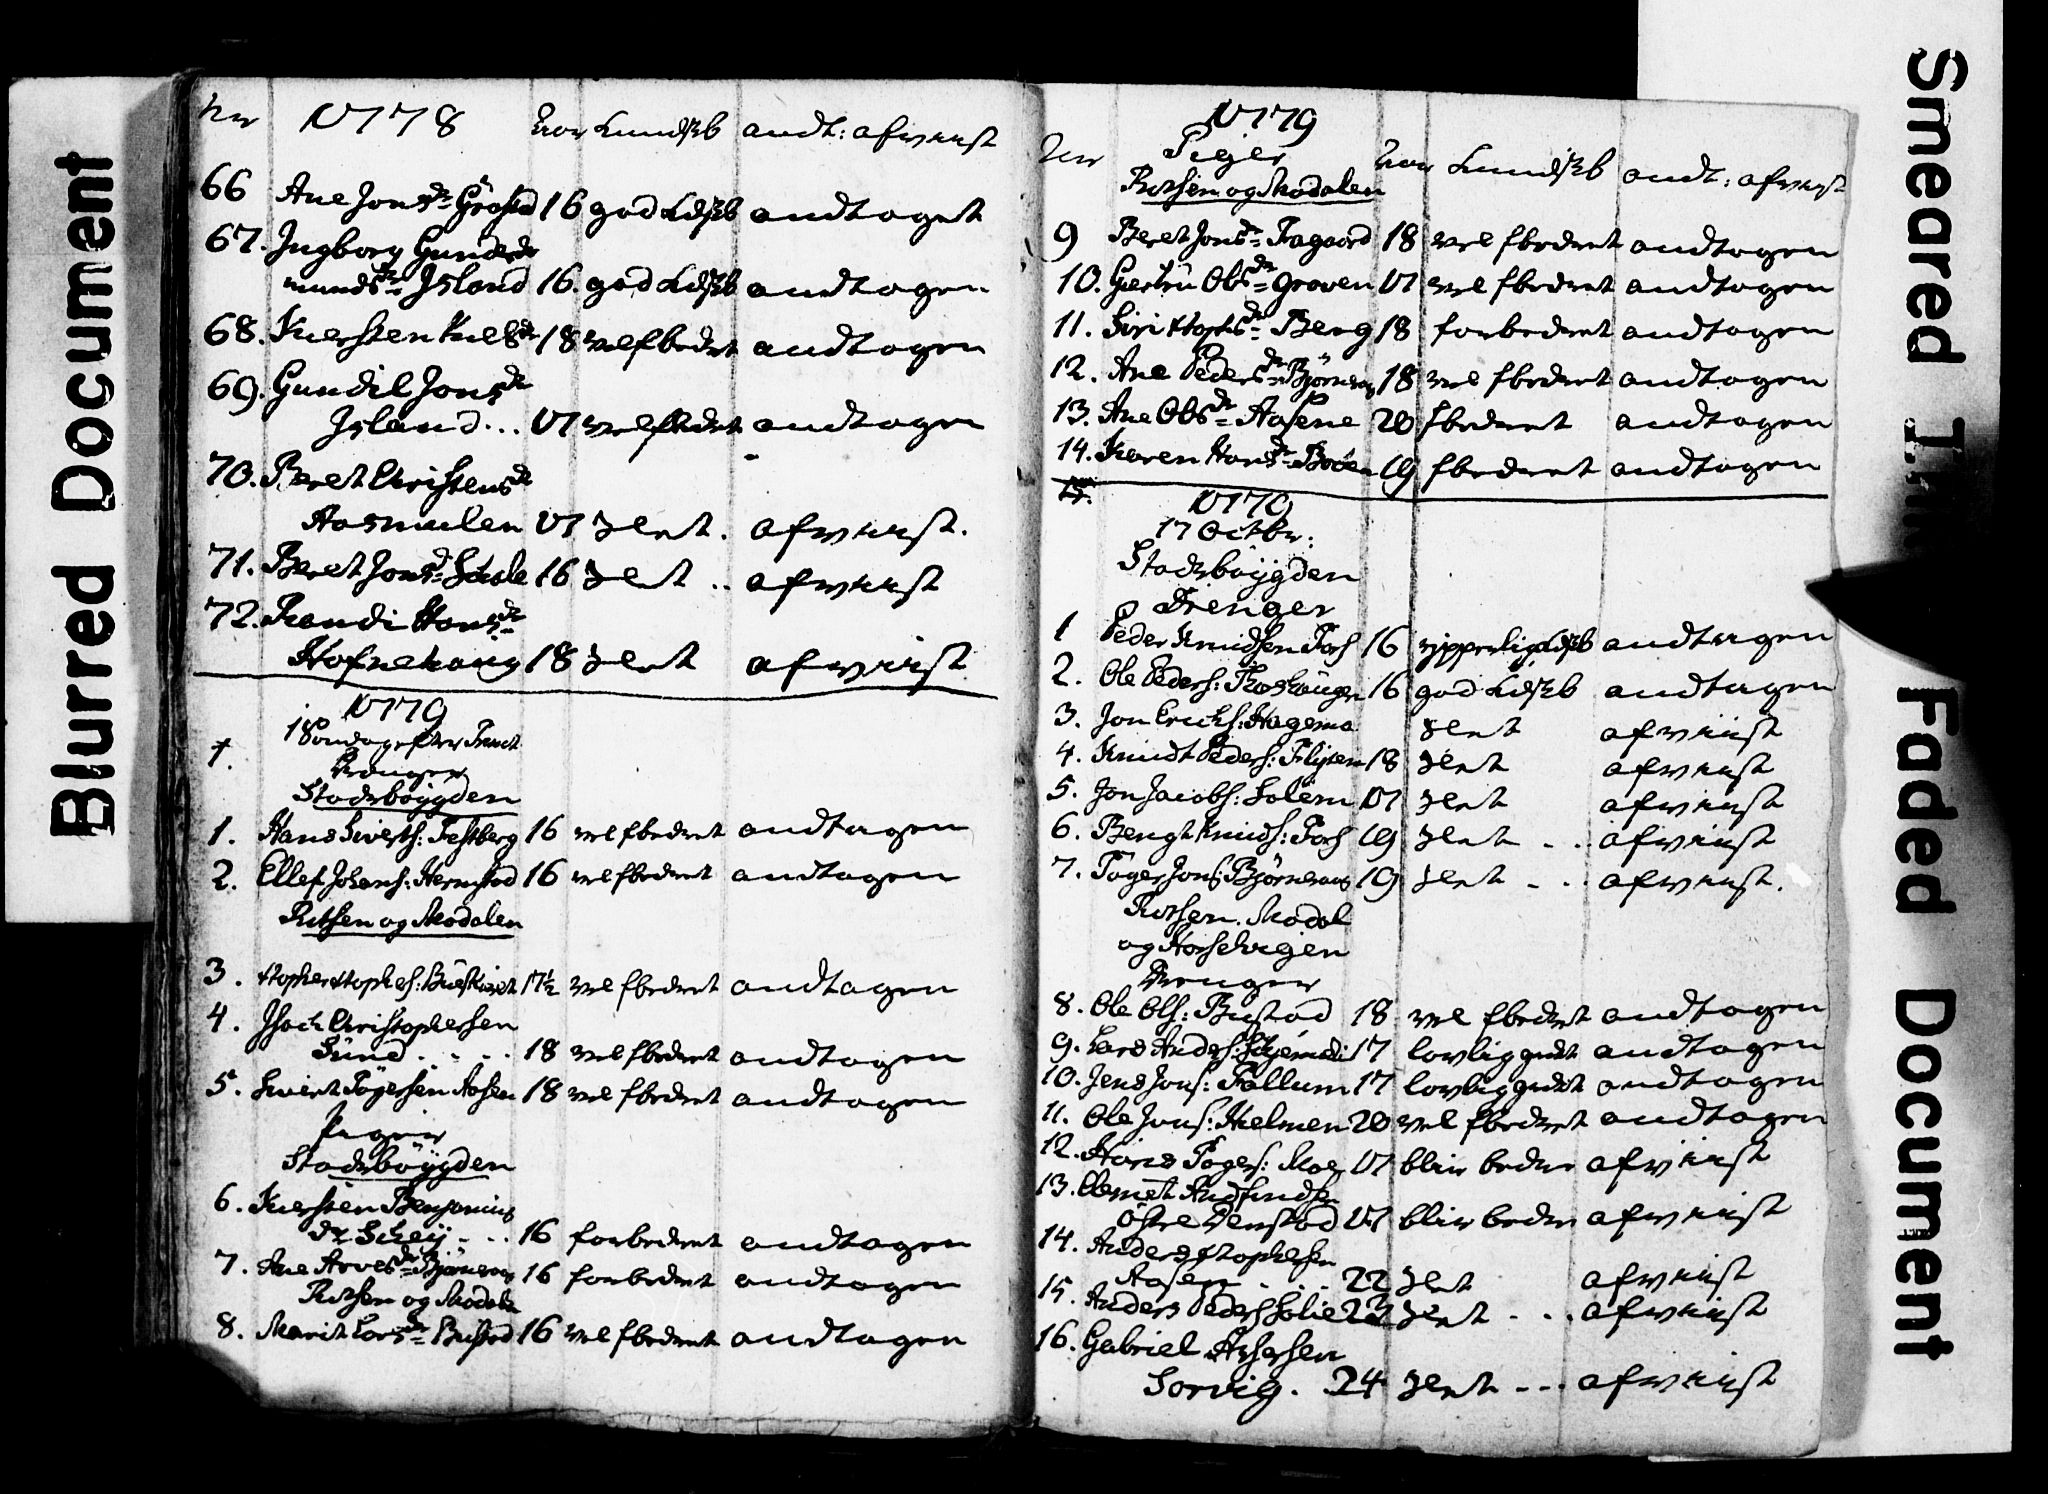 Blurred Document
Nr 1778 Aar Kundskb andt: afviist
66 Ane Jonsdr Gråstad 16 god Kdskb andtaget
67. Ingborg Gunde
mundsdr Island 16. god Kdskb andtagen
68. Kiersten 18 vel fbedret andtagen
69. Gundil Jonsdr
Island... 17 vel fbedret andtagen
70. Beret Christensdr
Aasmulen 17 slet. afviist.
71. Beret Jonsdr 16 slet .. afviist
72. Randi Hansdr
Hofnehaug 18 slet afviist
1779
1 Søndag efter Trinit
Drenger
Stadsbøygden
1. Hans Siverts: Testberg 16 vel fbedret andtagen
2. Ellef Johans: Hermstad 16 vel fbedret andtagen
Ritsen og Modalen
3. 17½ vel fbedret andtagen
4. Isach Christophersen
Sund.... 18 vel fbedret andtagen
5. Sivert Tøgersen Aasen 18 vel fbedret andtagen
Piger
Stadsbøygden
6. Kiersten Benjamins
dr Schey... 16 forbedret andtagen
7. Ane Arvesdr Bjørneraas 16 forbedret andtagen
Ritsen og Modalen
8. Marit Larsdr Bustad 16 vel fbedret andtagen
1779
Piger
Nr Aar Kundskb andt: afviist
Ritsen og Modalen
9 Beret Jonsdr Fagaard 18 vel fbedret andtagen
10. Giertru Olsdr Graven 17 vel fbedret andtagen
11. Siri Berg 18 forbedret andtagen
12. Ane Pedersdr Bjørneraas 18 vel fbedret andtagen
13. Ane Olsdr Aasene 20 fbedret andtagen
14. Karen Hansdr Broen 19 fbedret andtagen
1779
17 Octbr:
Stadsbøygden
Drenger
1 Peder Knudsen Fosh 16 ypperlig Kdskb andtagen
2. Ole Peders: 16 god Kdskb andtagen
3. Jon Erichs: Hagemo slet afviist
4. Knudt Peders: Flyten 18 slet afviist
5. Jon Jacobs: Solem 17 slet afviist
6. Bengt Knuds: Fosh 19 slet - .. afviist
7. Tøger Jons: Bjørneraas 19 slet - .. afviist.
Ritsen. Modal
og Hasselvigen
Drenger
8. Ole Ols: Bustad 18 vel fbedret andtagen
9. Lars Anders: 17 lovlig gudt andtagen
10. Jens Jons: Fallum 17 lovlig gudt andtagen
11. Ole Jons: Hielmen 20 vel fbedret andtagen
12. Hans Tøgers: Moe 17 bliv bedre afviist
13. Clemet Andfindsen
Østre Denstad 17 bliv bedre afviist
14. Anders
Aasen.... 22 slet afviist
15. Anders Peders Solie 23 slet - .. afviist
16. Gabriel Assersen
Sorvig. 24 slet - .. afviist
Smeared Ink
Faded Document